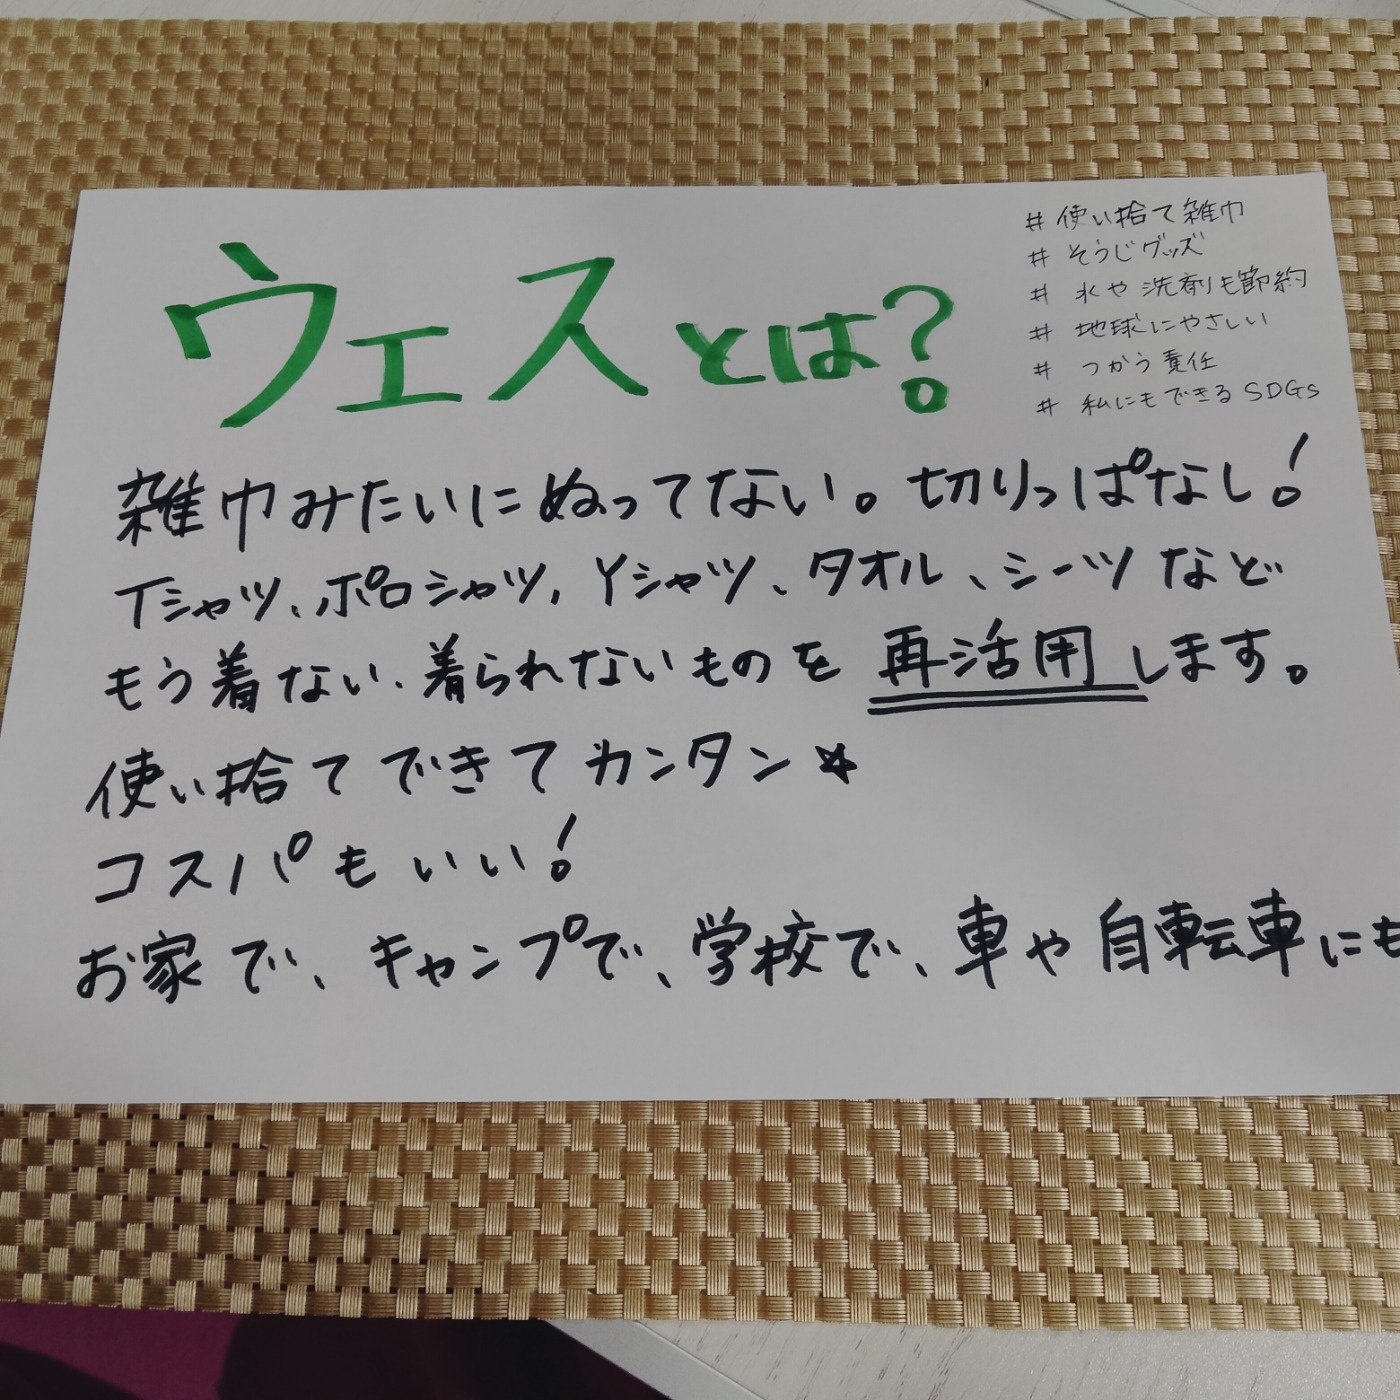 ウエスとは?
#使い捨て雑巾
#そうじグッズ
#水や洗剤も節約
#地球にやさしい
#つかう責任
#私にもできるSDGs
雑巾みたいにぬってない。切りっぱなし!
Tシャツ、ポロシャツ、Yシャツ、タオル、シーツなど
もう着ない、着られないものを再活用します。
使い捨てできてカンタン☆
コスパもいい!
お家で、キャンプで、学校で、車や自転車にも